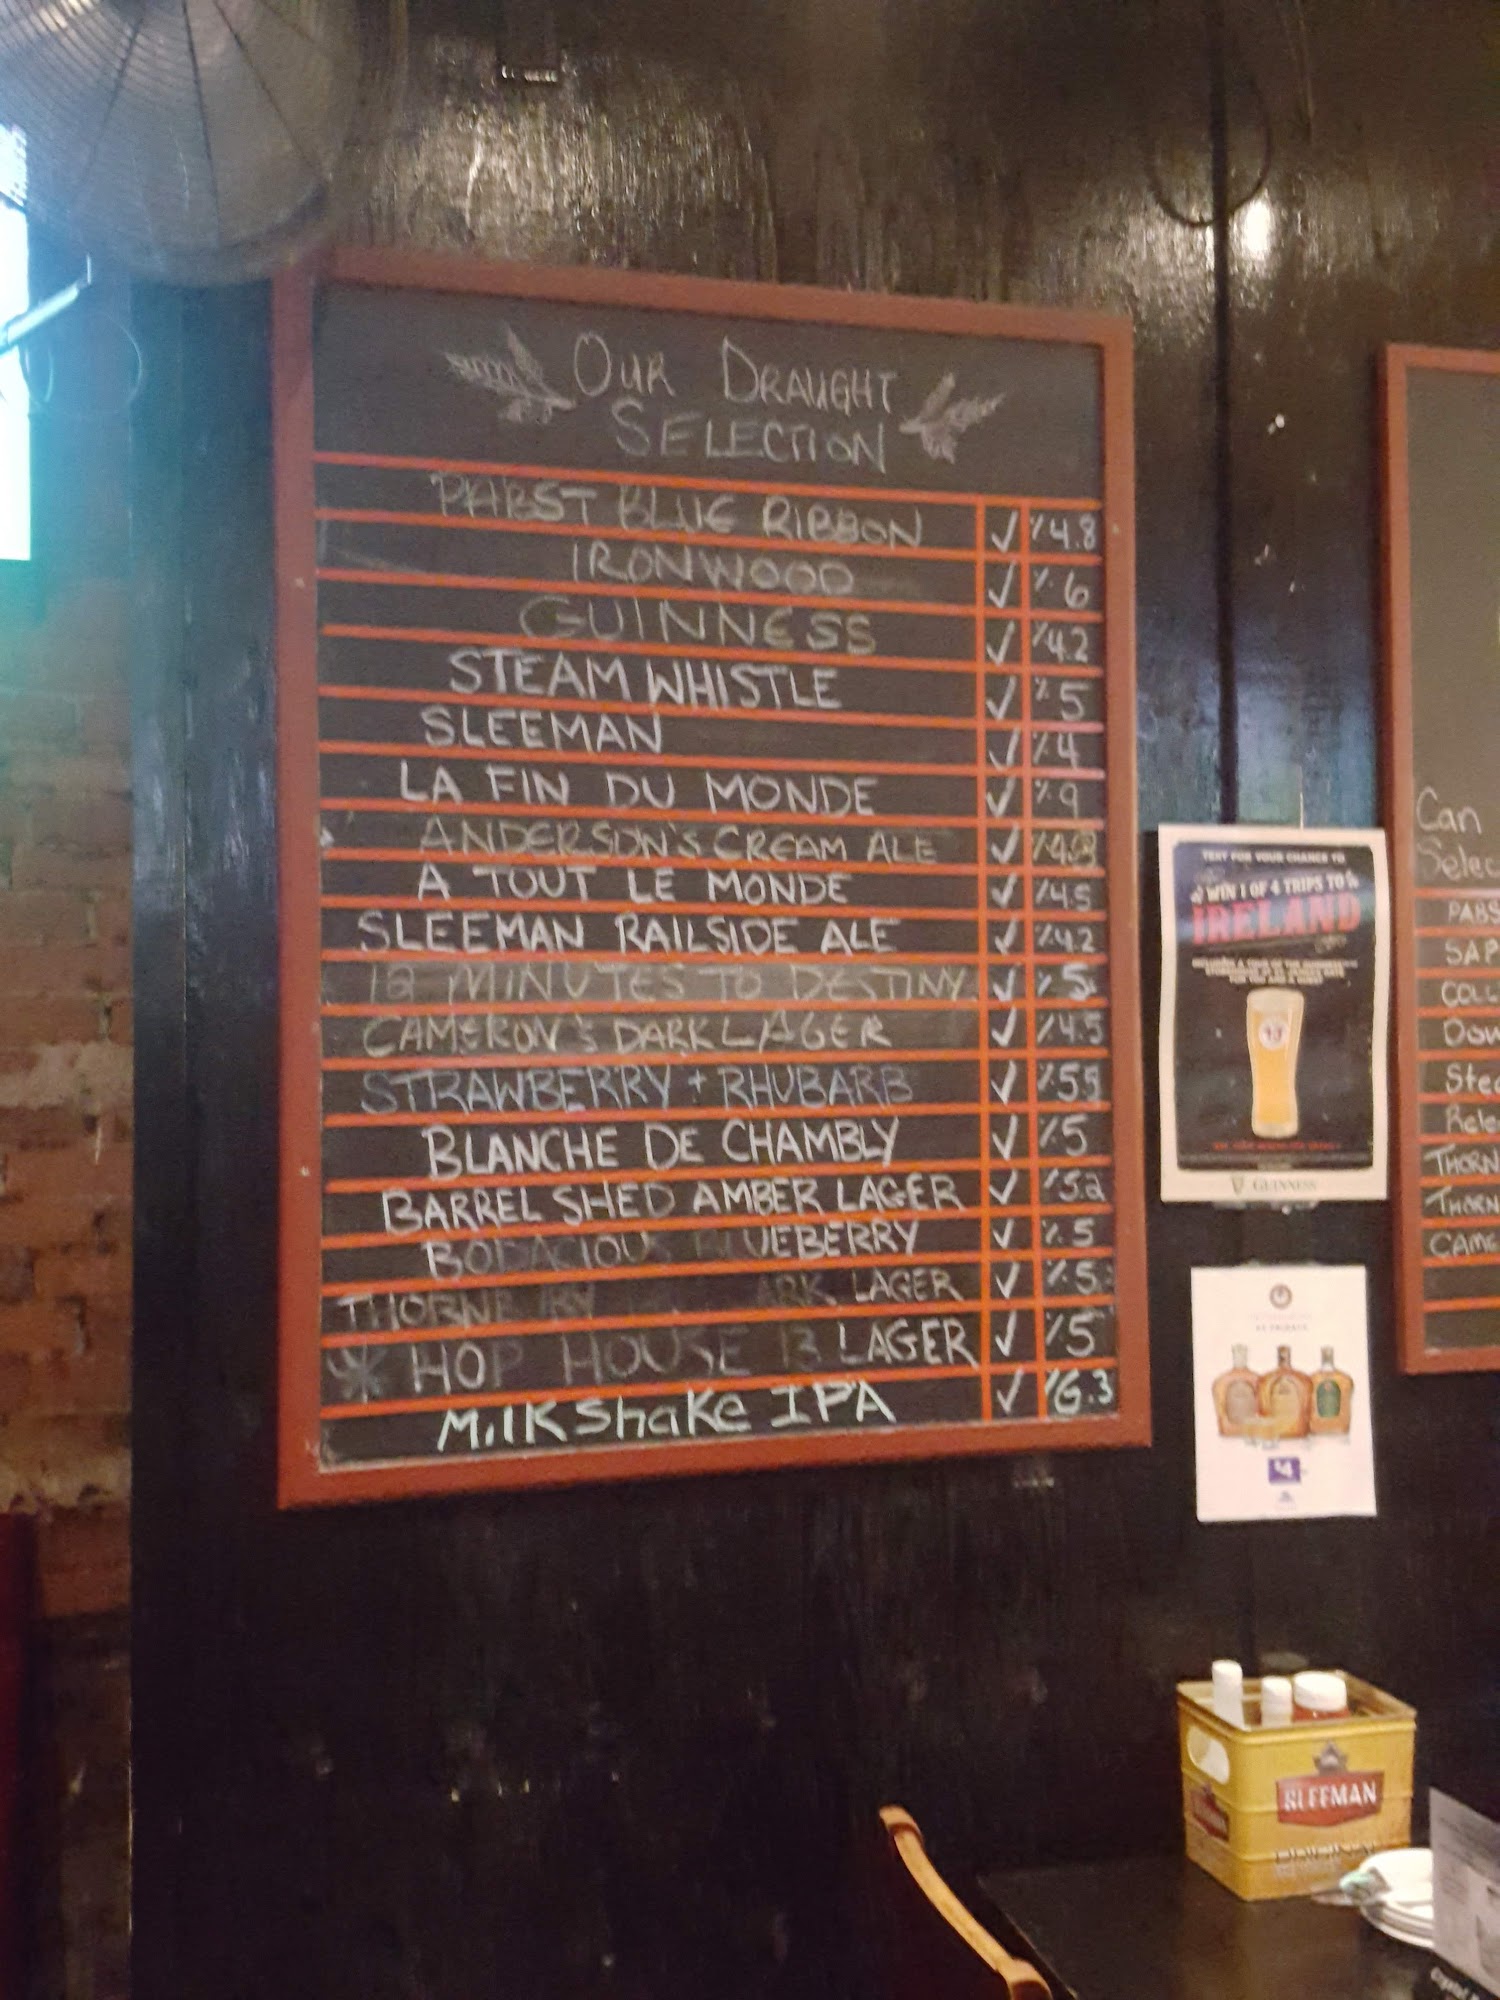 OUR DRAUGHT
SELECTION
PABST BLUE RIBBON ✓ % 4.8
IRONWOOD ✓ % 6
GUINNESS ✓ % 4.2
STEAM WHISTLE ✓ % 5
SLEEMAN ✓ % 4
LA FIN DU MONDE ✓ % 9
ANDERSON'S CREAM ALE ✓ %
A TOUT LE MONDE ✓ % 4.5
SLEEMAN RAILSIDE ALE ✓ % 4.2
12 MINUTES TO DESTINY ✓ % 5
CAMERON'S DARK LAGER ✓ % 4.5
STRAWBERRY + RHUBARB ✓ % 5.5
BLANCHE DE CHAMBLY ✓ % 5
BARREL SHED AMBER LAGER ✓ % 5.2
BODACIOUS BLUEBERRY ✓ % 5
LAGER ✓ % 5
* HOP HOUSE 13 LAGER ✓ % 5
Milkshake IPA ✓ % 6.3
TEXT FOR YOUR CHANCE TO
WIN 1 OF 4 TRIPS TO
IRELAND
GUINNESS
$4
Can
Selec
PABS
SAP
COLL
Dow
Stea
Rele
THORN
THORN
CAME
SLEEMAN